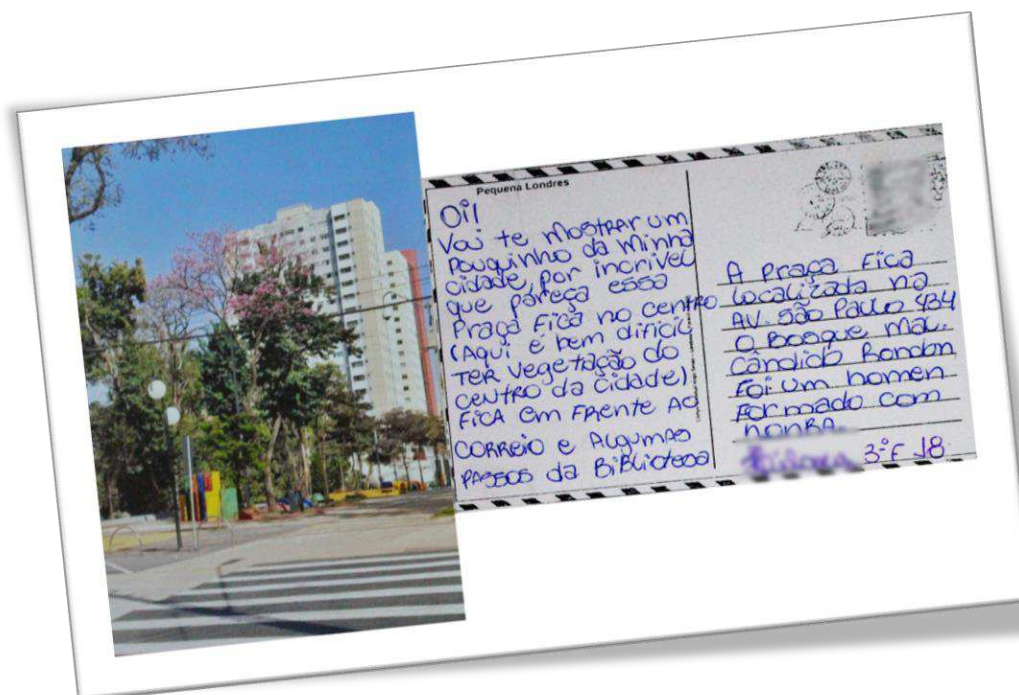 Pequena Londres
Oi!
Vou te mostrar um
pouquinho da minha
cidade, por incrivel
que pareça essa
Praça Fica no centro
(Aqui é bem dificil
ter vegetação do
centro da cidade)
Fica em Frente ao
correio e Algumas
passos da Biblioteca
A praça Fica
localizada na
AV. São Paulo 434
O Bosque Mal.
Cândido Rondon,
Foi um homem
formado com
honra.
3ºF 18